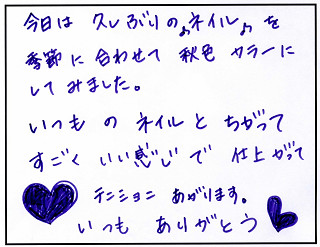 今日は 久しぶりの♪ネイル♪を
季節に合わせて 秋色カラーに
してみました。
いつものネイルとちがって
すごくいい感じで 仕上がって
テンション あがります。
いつも ありがとう